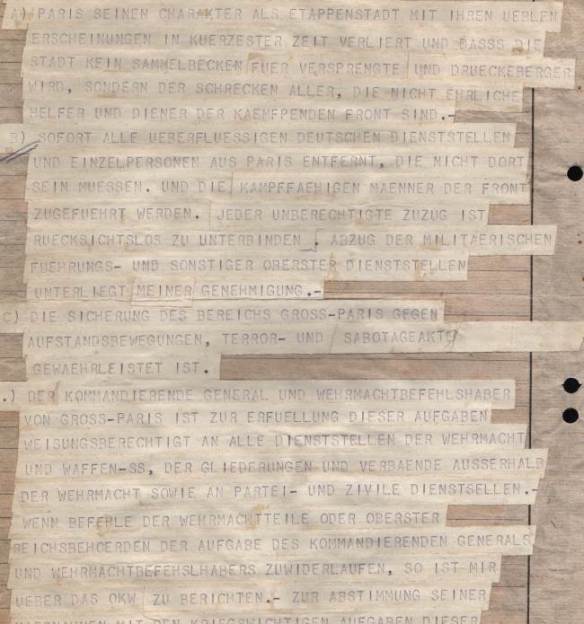 A) PARIS SEINEN CHARAKTER ALS ETAPPENSTADT MIT IHREN UEBLEN
ERSCHEINUNGEN IN KUERZESTER ZEIT VERLIERT UND DASSS DIE
STADT KEIN SAMMELBECKEN FUER VERSPRENGTE UND DRUECKEBERGER
WIRD, SONDERN DER SCHRECKEN ALLER, DIE NICHT EHRLICHE
HELFER UND DIENER DER KAEMFPENDEN FRONT SIND.-
B) SOFORT ALLE UEBERFLUESSIGEN DEUTSCHEN DIENSTSTELLEN
UND EINZELPERSONEN AUS PARIS ENTFERNT, DIE NICHT DORT
SEIN MUESSEN. UND DIE KAMPFFAEHIGEN MAENNER DER FRONT
ZUGEFUEHRT WERDEN. JEDER UNBERECHTIGTE ZUZUG IST
RUECKSICHTSLOS ZU UNTERBINDEN . ABZUG DER MILITAERISCHEN
FUEHRUNGS- UND SONSTIGER OBERSTER DIENSTSTELLEN
UNTERLIEGT MEINER GENEHMIGUNG.-
C) DIE SICHERUNG DES BEREICHS GROSS-PARIS GEGEN
AUFSTANDSBEWEGUNGEN, TERROR- UND SABOTAGEAKTE
GEWAEHRLEISTET IST.
.) DER KOMMANDIERENDE GENERAL UND WEHRMACHTBEFEHLSHABER
VON GROSS-PARIS IST ZUR ERFUELLUNG DIESER AUFGABEN
WEISUNGSBERECHTIGT AN ALLE DIENSTSTELLEN DER WEHRMACHT
UND WAFFEN-SS, DER GLIEDERUNGEN UND VERBAENDE AUSSERHALB
DER WEHRMACHT SOWIE AN PARTEI- UND ZIVILE DIENSTSELLEN.-
WENN BEFEHLE DER WEHRMACHTTEILE ODER OBERSTER
REICHSBEHOERDEN DER AUFGABE DES KOMMANDIERENDEN GENERALS
UND WEHRMACHTBEFEHSLHABERS ZUWIDERLAUFEN, SO IST MIR
UEBER DAS OKW ZU BERICHTEN.- ZUR ABSTIMMUNG SEINER
MASSNAHMEN MIT DEN KRIEGSWICHTIGEN AUFGABEN DIESER